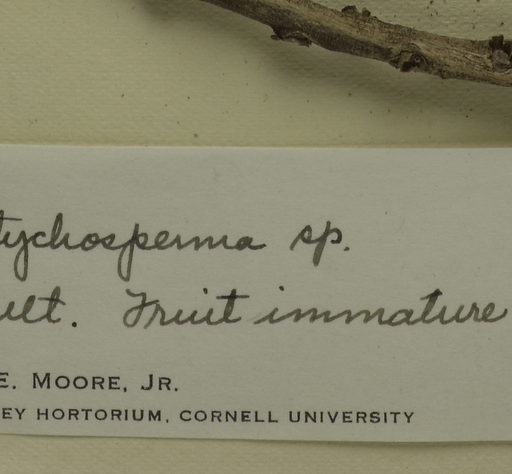 tychosperma sp.
ult. Fruit immature
E. MOORE, JR.
EY HORTORIUM, CORNELL UNIVERSITY